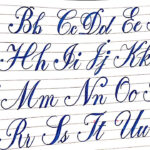 Bb Cc Dd Ee
Hh Ii Jj Kk
Mm Nn Oo
Rr Ss Tt Uu